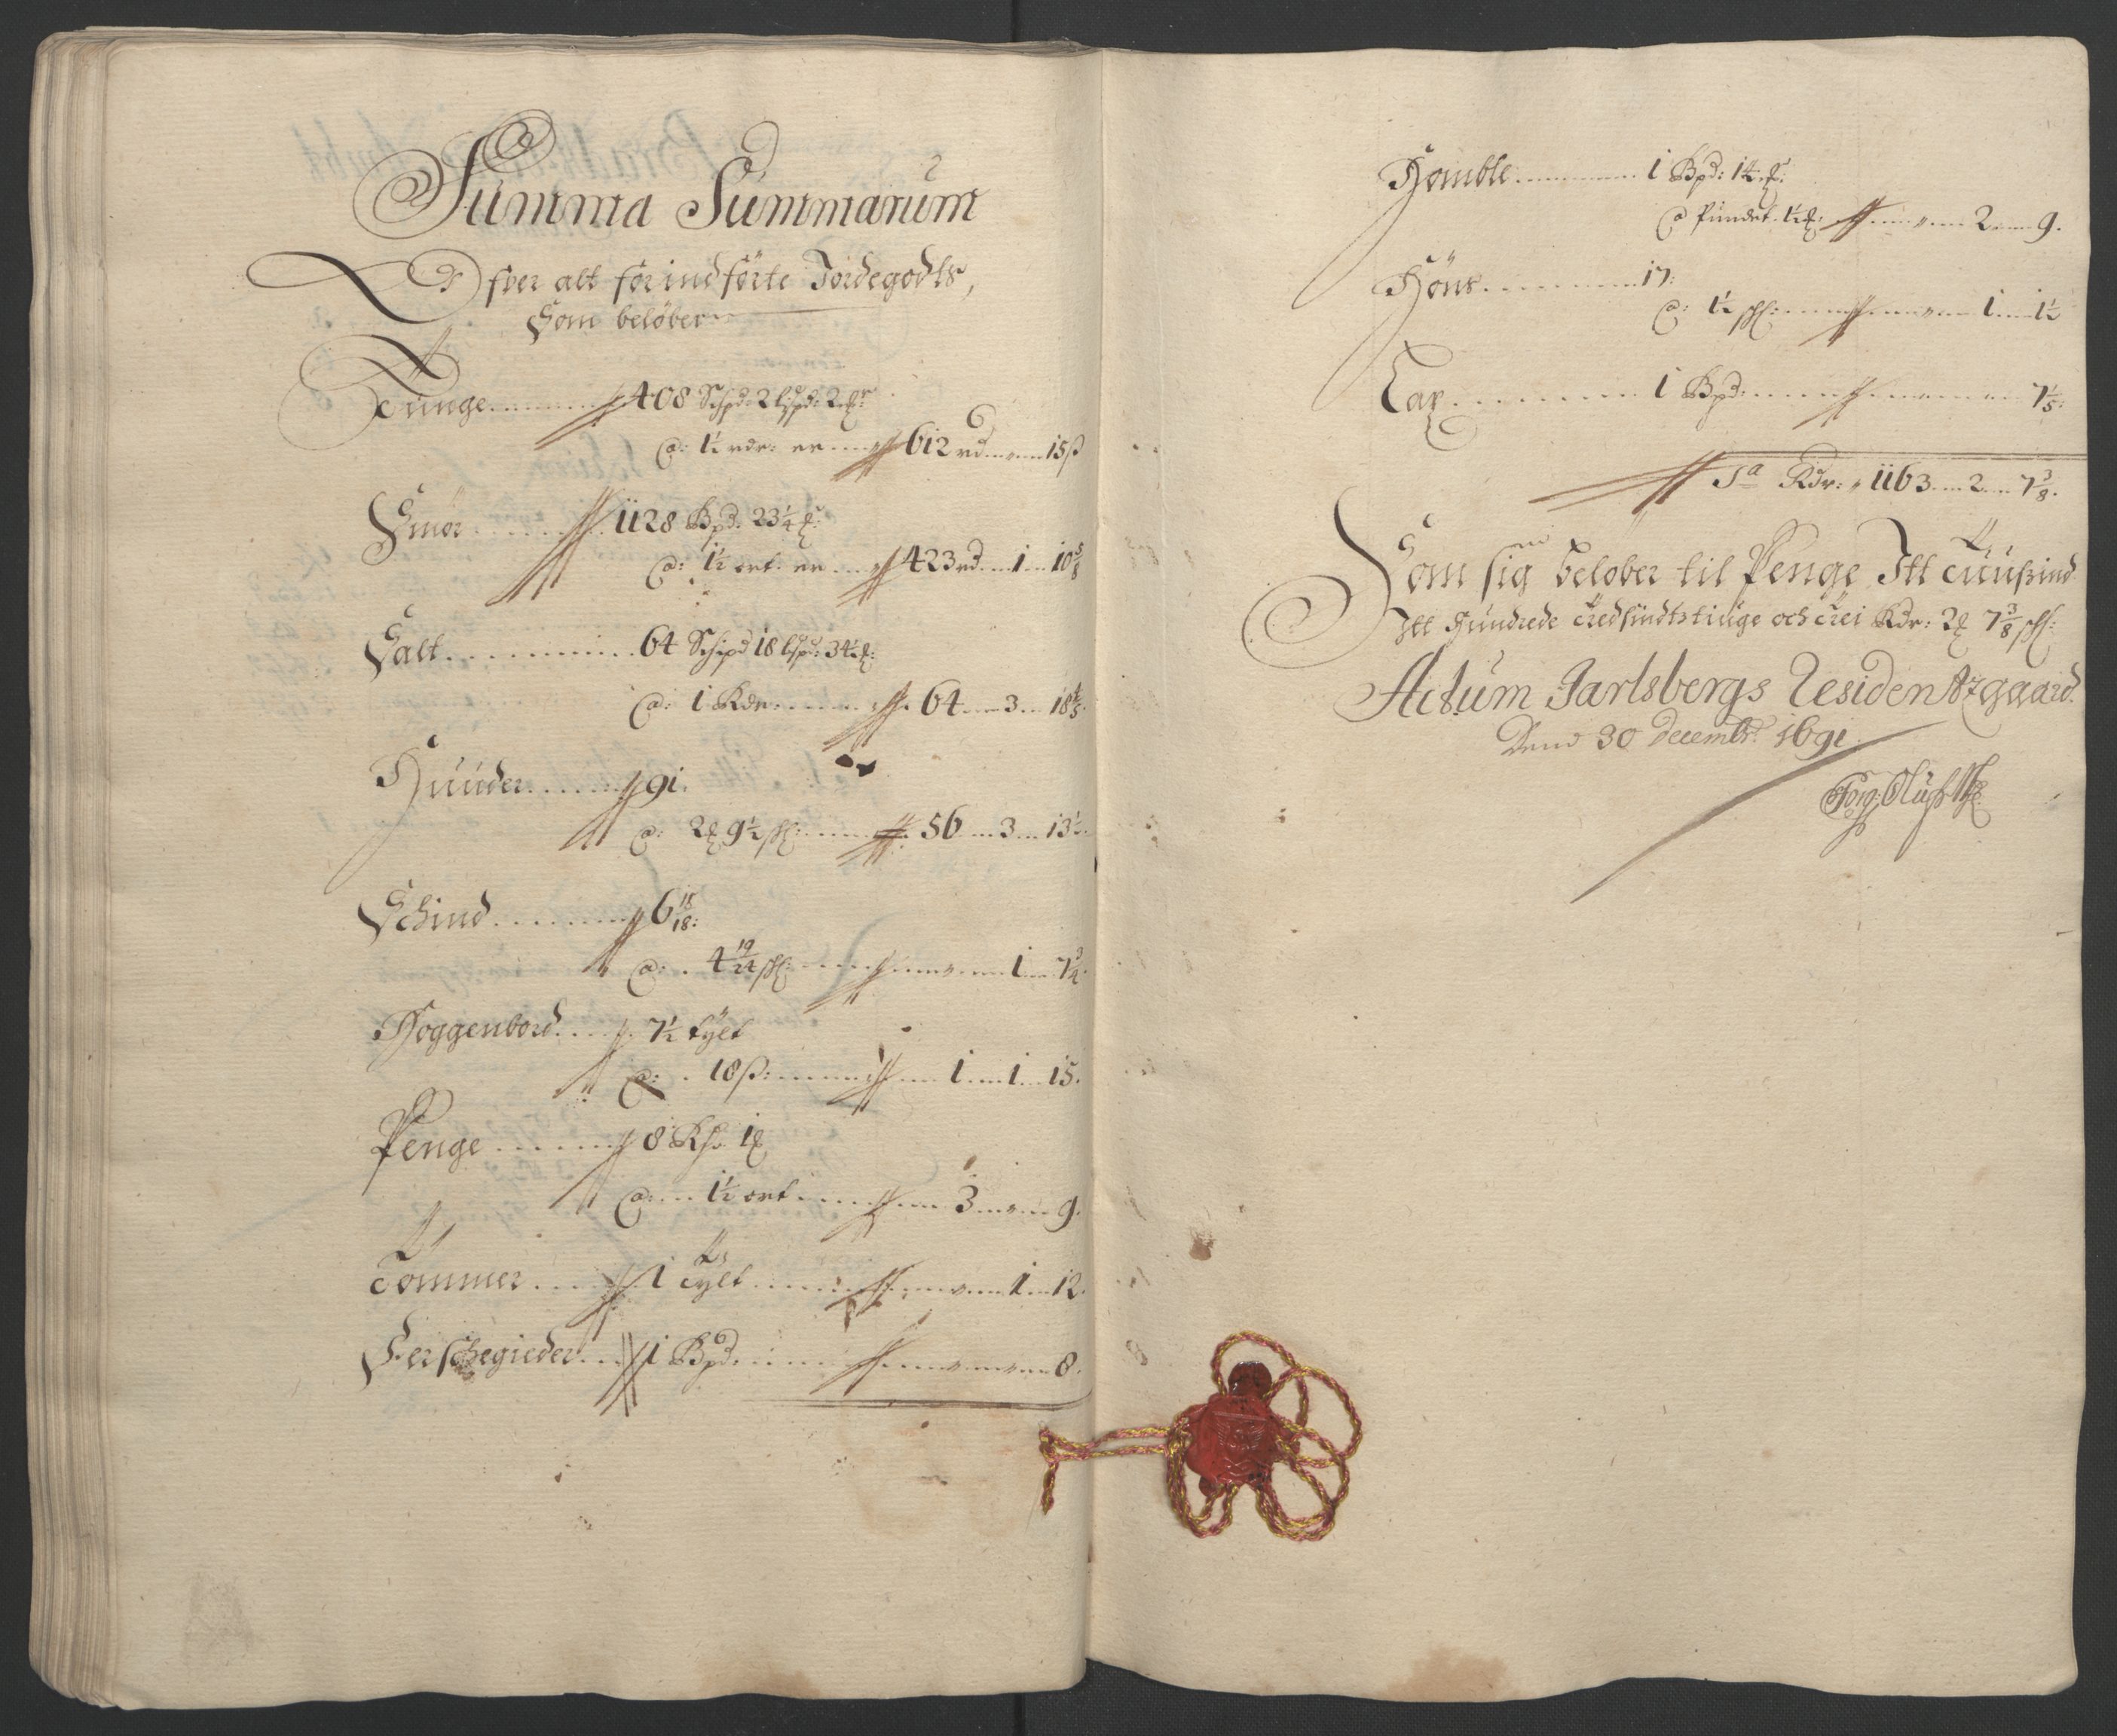 Summa Summarum
Ofver alt forindförte Jordegodts,
Som belöber
Tunge 408 Schpd: 2 lispd: 2
a: 1½ rdr: er 612 rd 15 ß
Smör 1128 Bpd. 23¼
a: 1½ ort. er 423 rd 1 10 5/8
Salt 64 Schipd 18 lispd: 3½
a: 1 Rdr 64 3 18 4/5
Huuder 91.
a: 2 9½ sch: 56 3 13½
Schind 6 15/18:
a: 4 19/24 sch: 1 7¾
Hoggenbord 7½ tylt
a: 18 ß: 1 1 15.
Penge 8 1
a: 1½ ort 3 9.
Tömmer 1 Tylt 1 12.
Ferschegieder 1 Bpd. 8.
Homble 1 Bpd: 14
a Pundet 1½ 2 9.
Höns 17:
a: 1½ sch: 1 1½
Lax 1 Bpd: 7 1/5:
Sa Rdr: 1163 2 7 3/8.
Som sig belober til Penge Itt Tuußind
Itt Hundrede Tredsindtstiuge och Trei Rdr: 2 7 3/8 sch:
Actum Jarlsbergs Residentzgaard.
Dend 30 Decembr: 1691